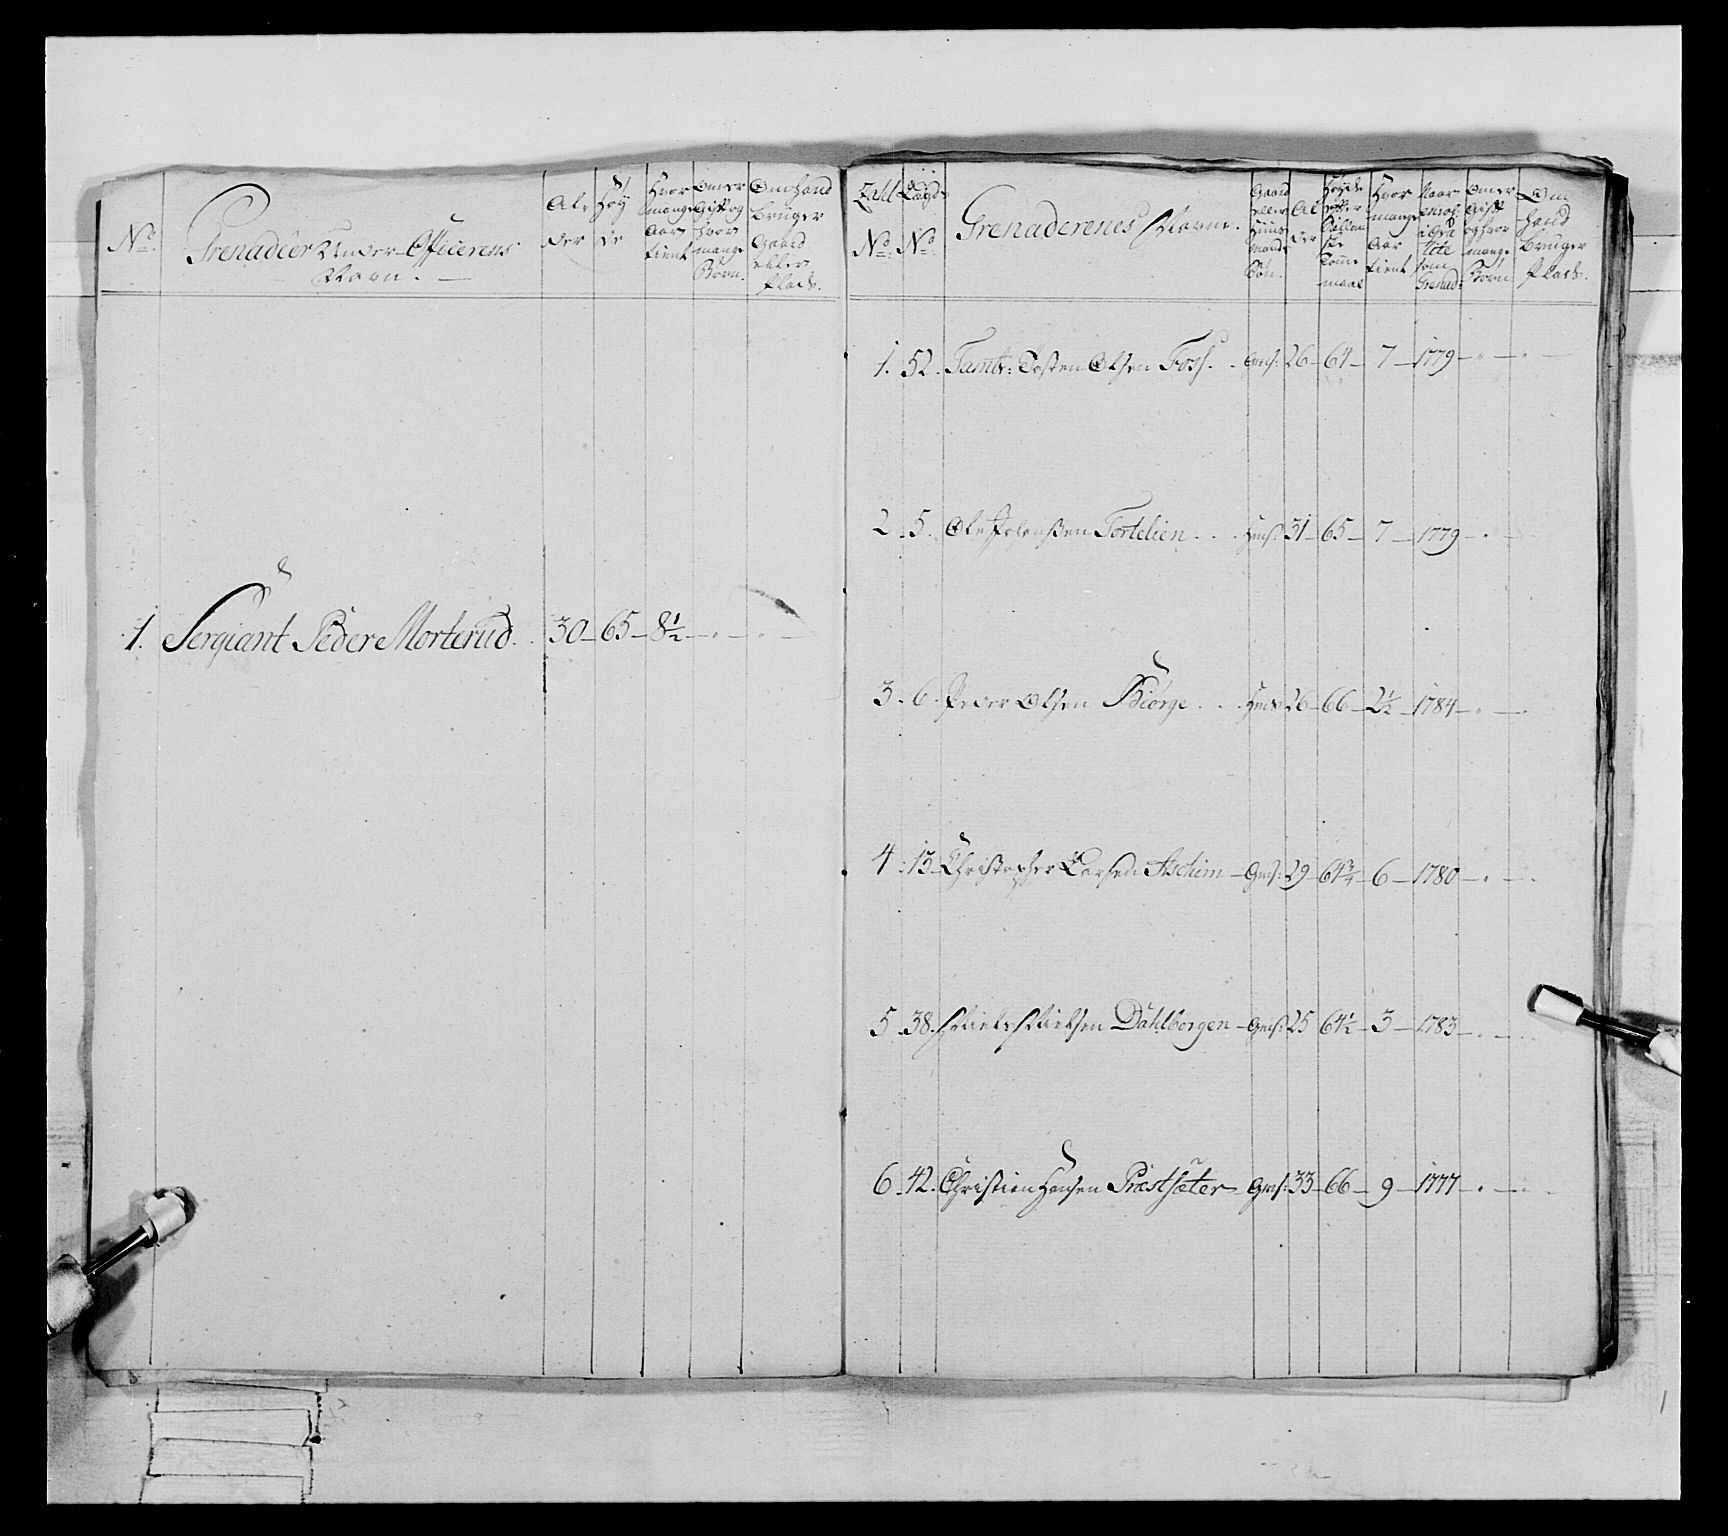 No. Grenadeer Under-Officerens Navn. Alder Høyde Hvor mange Aar tient Om er Gift og hvor mange Børn. Om hand bruger Gaard eller Plads.
1. Sergiant Peder Morterud. 30 – 65 – 8½
Zahl No. Lægds No. Grenaderenes Navne. Gaard eller Huus Mands Søn. Alder Høyde efter Tomme maal Hvor mange Aar tient Naar som Grenad: Om er Gift og hvor mange Børn Om hand bruger Plads.
1. 52. Tamb: Tosten Olsen Foss. Gms: 26 – 64 – 7 – 1779
2. 5. Ole Tortelien Hms: 31 – 65 – 7 – 1779
3. 6. Peder Olsen Kiörge Hms: 26 – 66 – 2½ – 1784
4. 15 Christopher Larsen Aschim – Gms: 29 – 64¾ – 6 – 1780
5. 38. Niels Nielsen Dahlborgen – Gms: 25 64½ – 3 – 1783
6. 42. Christien Hansen Præstsæter – Gms: 33 – 66 – 9 – 1777